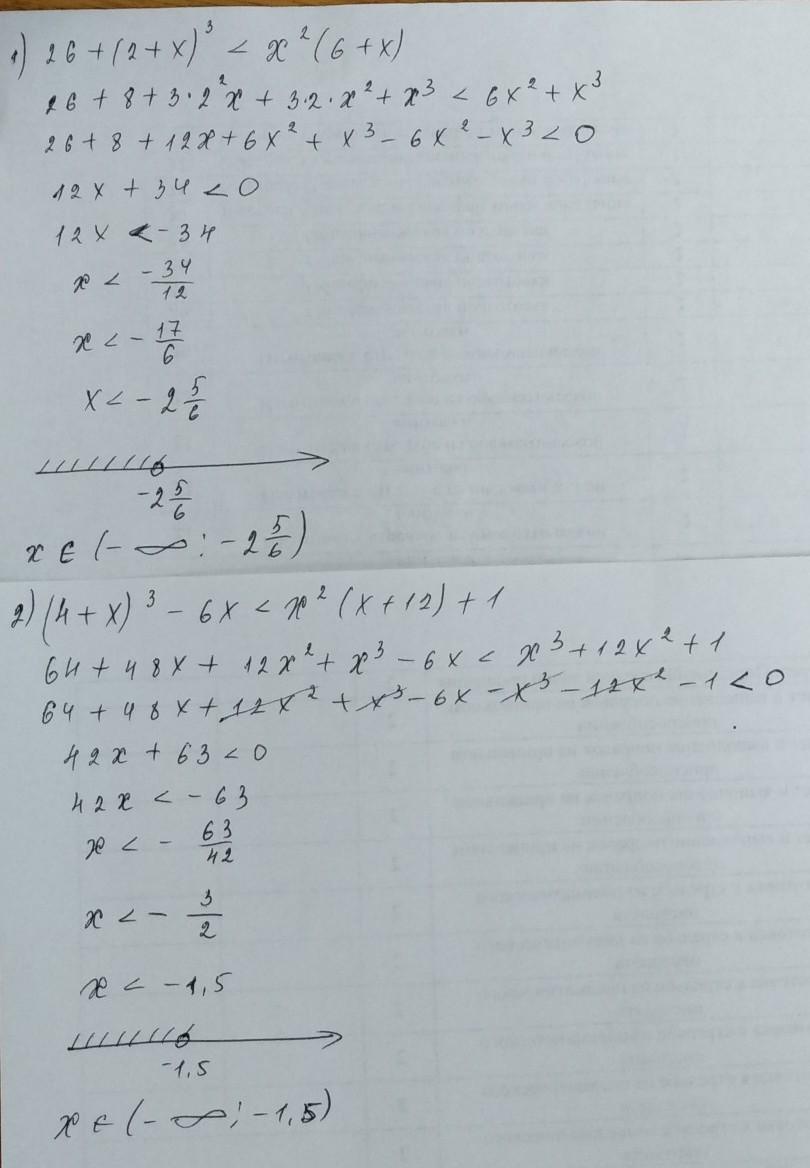 1) 26 + (2 + x)³ < x² (6 + x)
26 + 8 + 3·2²x + 3·2·x² + x³ < 6x² + x³
26 + 8 + 12x + 6x² + x³ - 6x² - x³ < 0
12x + 34 < 0
12x < - 34
x < -34/12
x < - 17/6
x < - 2 5/6
-2 5/6
x ∈ (- ∞ ; -2 5/6)
2) (4 + x)³ - 6x < x² (x + 12) + 1
64 + 48x + 12x² + x³ - 6x < x³ + 12x² + 1
64 + 48x + 12x² + x³ - 6x - x³ - 12x² - 1 < 0
42x + 63 < 0
42x < - 63
x < - 63/42
x < - 3/2
x < -1,5
-1,5
x ∈ (- ∞ ; -1,5)